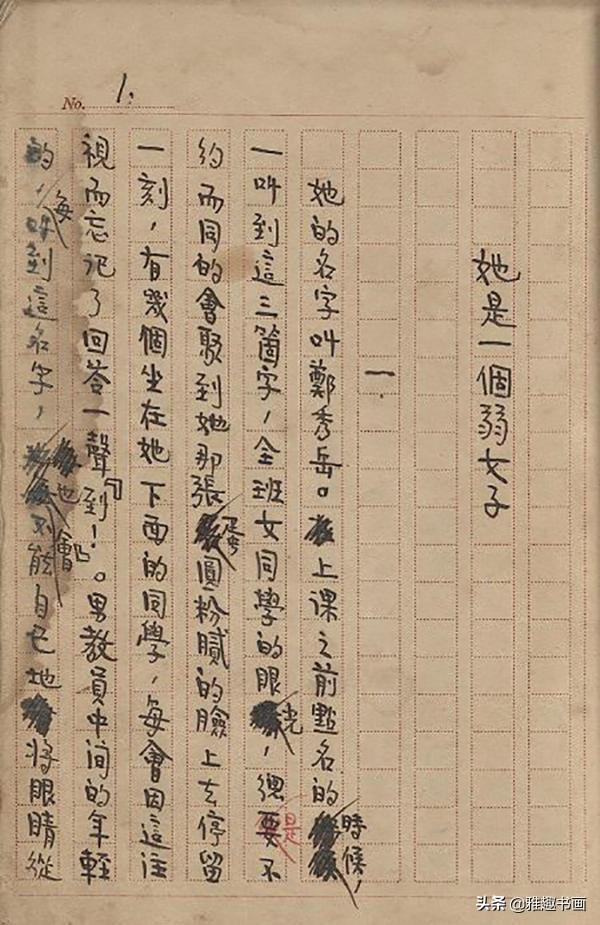 No. 1.
她是一個弱女子
一.
她的名字叫鄭秀岳。上课之前點名的時候,
一叫到這三箇字,全班女同學的眼光,總是不
約而同的會聚到她那張蛋圓粉膩的臉上去停留
一刻,有幾個坐在她下面的同學,每會因這注
視而忘记了回答一聲『到!』。男教員中间的年輕
的,每叫到這名字,也會不能自已地將眼睛從
头条 @雅趣书画